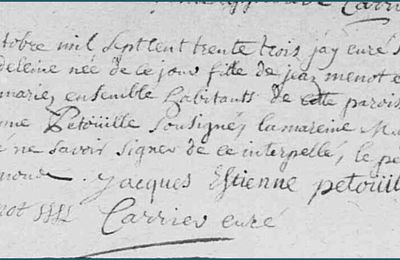 Carrier
ctobre mil sept cent trente trois jay curé
deleine née de ce jour fille de jean menot e
mariez ensemble habitants de cette parois
nne Petouille soussignés la mareine
e ne savoir signer de ce interpellé, le pe
mond. Jacques Estienne petouill
not Carrier curé